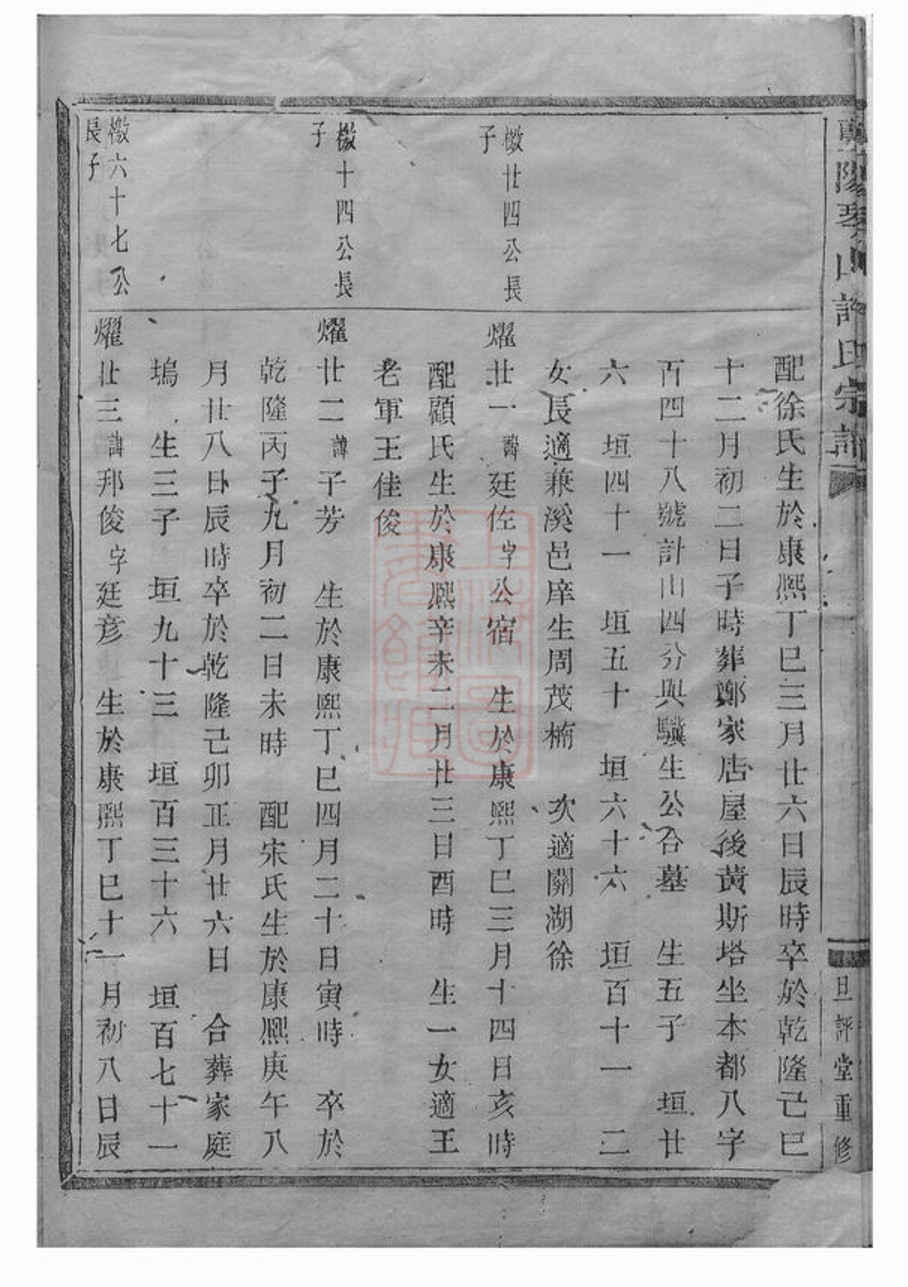 琴山許氏宗譜
旦評堂重修
配徐氏生於康熙丁巳三月廿六日辰時卒於乾隆己巳
十二月初二日子時葬鄭家店屋後黃斯塔坐本都八字
百四十八號計山四分與驥生公合墓 生五子 垣廿
六 垣四十一 垣五十 垣六十六 垣百十一 二
女長適兼溪邑庠生周茂楠 次適關湖徐
檄廿四公長
子
燿廿一諱廷佐字公宿 生於康熙丁巳三月十四日亥時
配顧氏生於康熙辛未二月廿三日酉時 生一女適王
老軍王佳俊
檄十四公長
子
燿廿二諱子芳 生於康熙丁巳四月二十日寅時 卒於
乾隆丙子九月初二日未時 配宋氏生於康熙庚午八
月廿八日辰時卒於乾隆己卯正月廿六日 合葬家庭
塢 生三子 垣九十三 垣百三十六 垣百七十一
檄六十七公
長子
燿廿三諱邦俊字廷彥 生於康熙丁巳十一月初八日辰